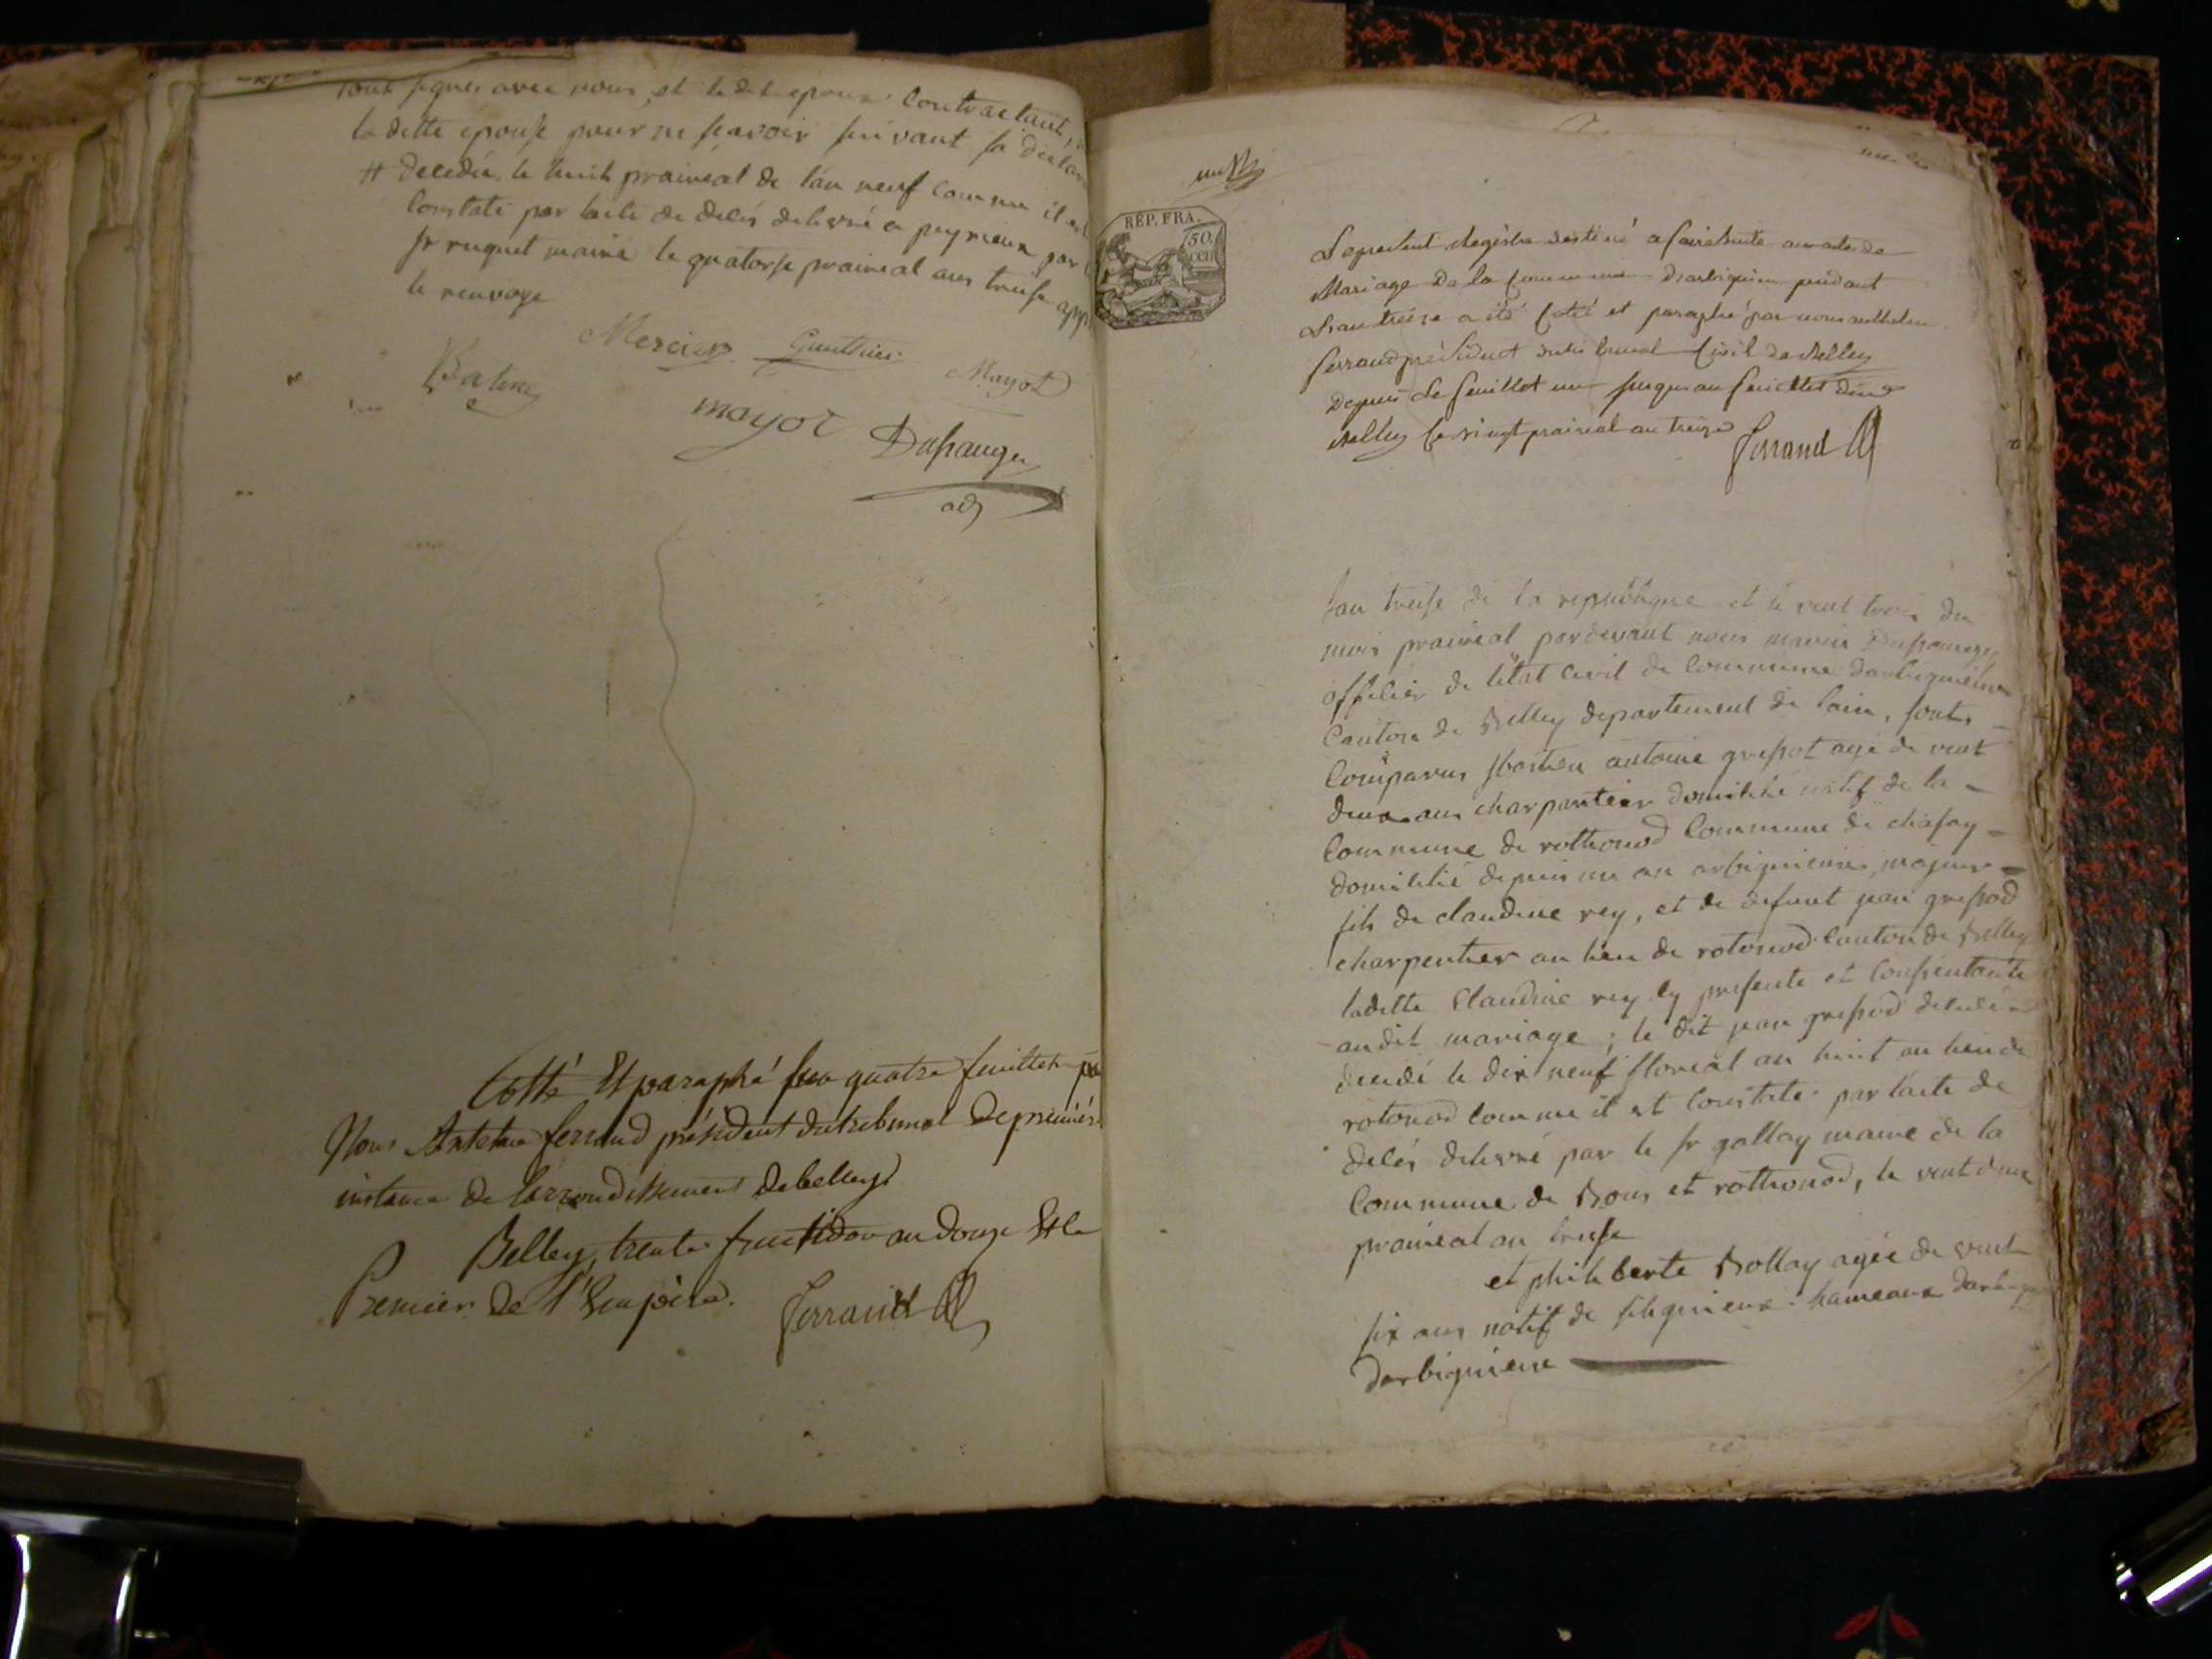 sont signés avec nous, et le dit epoux contractant,
la ditte epouse pour ne scavoir suivant sa declar
# decedée le huit prairéal de l'an neuf comme il est
constaté par lacte de decés delivré a peyrieux par
sr ruguet maire le quatorse praireal an treise app
le renvoye
Mercier Gauthier Mayot
Balme
mayot Dufauge
adj
Cotté Et paraphé sur quatre feuillets par
Nous Antelme ferrand président du tribunal de premiér
instance de larrondissement de belley
Belley, trente fructidor an douze Et le
Premier de l'Empire. Ferrand
un
RÉP. FRA.
50
CEN
Le present Registre destiné a faire suite aux actes de
Mariage de la Commune Darbignieu pendant
L'an treize a été Cotté et paraphé par nous anthelme
ferrand président du tribunal Civil de Belley
Depuis Le feuillet un jusques au feuillet deux
Belley Le vingt prairial an treize Ferrand
Lan treise de la republique et le vint trois du
mois prairéal pardevant nous maurie Dufauge
officier de létat civil de commune darbignieux
Canton de Belley departement de lain, sonts
Comparus sbastien antoine grespot agé de vint
deux ans charpantier domicilié natif de la
Commune de rothonod Commune de chasay
domicilié depuis un an arbignieux, majeur
fils de claudine rey, et de defunt jean grespod
charpentier au lieu de rotonod canton de Belley
laditte Claudine rey cy presente et consentante
audit mariage ; le dit jean grespod decedé
decedé le dix neuf floréal an huit au lieu de
rotonod comme il est constaté par lacte de
decés delivré par le sr gallay maire de la
Commune de Bons et rothonod, le vint deux
prairéal an treise
et philiberte Bollay agée de vint
six ans natif de silignieux hameaux
darbignieux